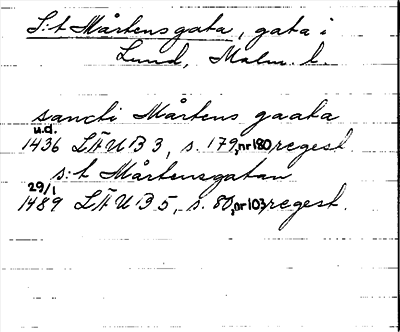 S:t Mårtensgata, gata i
Lund, Malm. l.
sancti Mårtens gaata
u.d.
1436 LÄUB 3, s. 179, nr 180, regest
s:t Mårtensgatan
29/1
1489 LÄUB 5, s. 80, nr 103, regest.